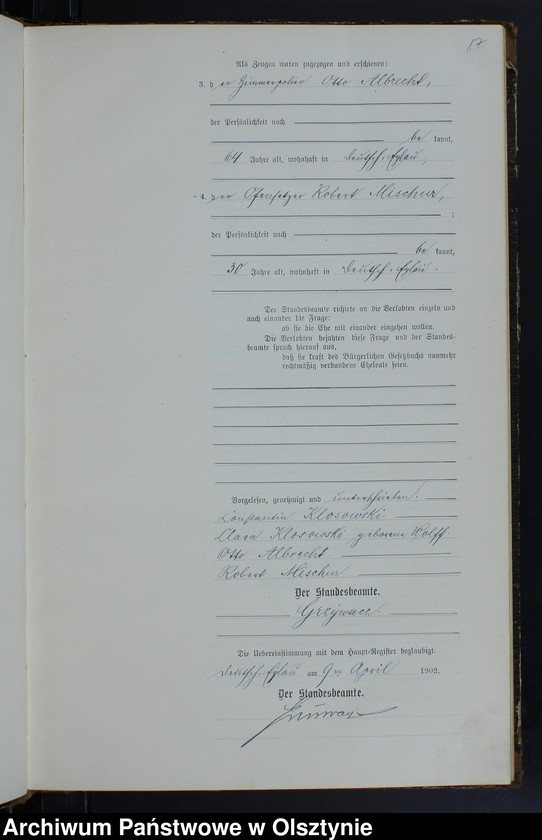 87
Als Zeugen waren zugezogen und erschienen:
3. der Zimmerpolier Otto Albrecht,
der Persönlichkeit nach
be kannt,
64 Jahre alt, wohnhaft in Deutsch-Eylau;
4. der Ofensetzer Robert Mischur,
;
der Persönlichkeit nach
be kannt,
30 Jahre alt, wohnhaft in Deutsch-Eylau.
Der Standesbeamte richtete an die Verlobten einzeln und
nach einander die Frage:
ob sie die Ehe mit einander eingehen wollen.
Die Verlobten bejahten diese Frage und der Standes-
beamte sprach hierauf aus,
daß sie kraft des Bürgerlichen Gesetzbuchs nunmehr
rechtmäßig verbundene Eheleute seien.
Vorgelesen, genehmigt und unterschrieben.
Constantin Klosowski.
Clara Klosowski geborene Wolff.
Otto Albrecht
Robert Mischur.
Der Standesbeamte.
Grzywacz.
Die Uebereinstimmung mit dem Haupt-Register beglaubigt.
Deutsch-Eylau am 9ten April 1902.
Der Standesbeamte.
Archiwum Państwowe w Olsztynie